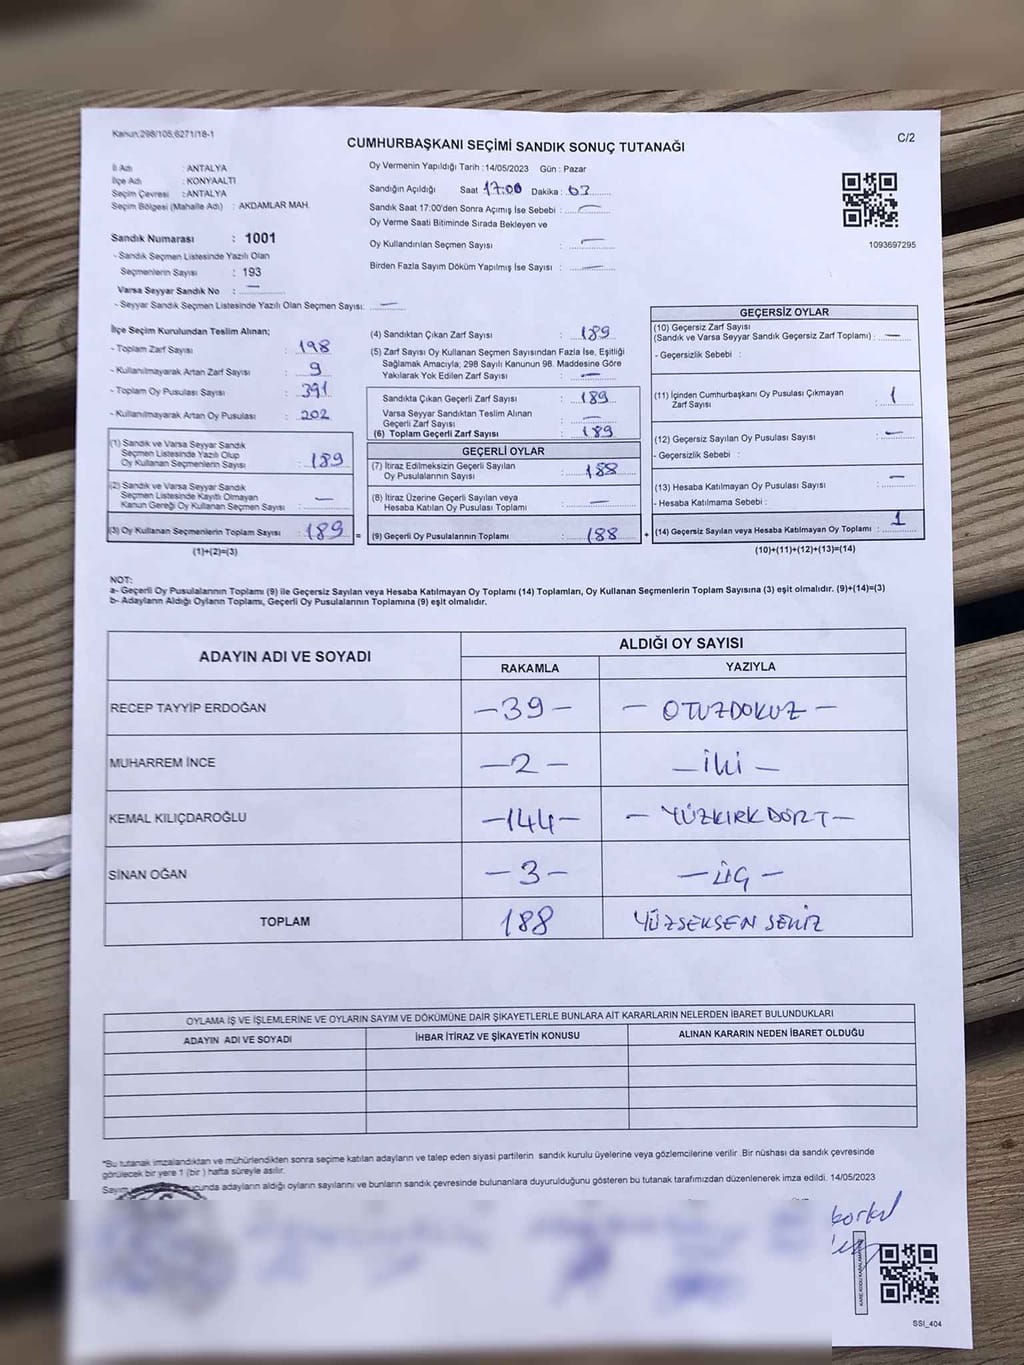 Kanun:298/105;6271/18-1
C/2
CUMHURBAŞKANI SEÇİMİ SANDIK SONUÇ TUTANAĞI
İl Adı : ANTALYA
İlçe Adı : KONYAALTI
Seçim Çevresi : ANTALYA
Seçim Bölgesi (Mahalle Adı) : AKDAMLAR MAH.
Sandık Numarası : 1001
- Sandık Seçmen Listesinde Yazılı Olan
Seçmenlerin Sayısı : 193
Varsa Seyyar Sandık No : —
- Seyyar Sandık Seçmen Listesinde Yazılı Olan Seçmen Sayısı: —
Oy Vermenin Yapıldığı Tarih : 14/05/2023 Gün : Pazar
Sandığın Açıldığı Saat 17:00 Dakika : 03
Sandık Saat 17:00'den Sonra Açımış İse Sebebi : —
Oy Verme Saati Bitiminde Sırada Bekleyen ve
Oy Kullandırılan Seçmen Sayısı : —
Birden Fazla Sayım Döküm Yapılmış İse Sayısı : —
1093697295
İlçe Seçim Kurulundan Teslim Alınan;
- Toplam Zarf Sayısı : 198
- Kullanılmayarak Artan Zarf Sayısı : 9
- Toplam Oy Pusulası Sayısı : 391
- Kullanılmayarak Artan Oy Pusulası : 202
(1) Sandık ve Varsa Seyyar Sandık
Seçmen Listesinde Yazılı Olup
Oy Kullanan Seçmenlerin Sayısı : 189
(2) Sandık ve Varsa Seyyar Sandık
Seçmen Listesinde Kayıtlı Olmayan
Kanun Gereği Oy Kullanan Seçmen Sayısı : —
(3) Oy Kullanan Seçmenlerin Toplam Sayısı : 189 =
(1)+(2)=(3)
(4) Sandıktan Çıkan Zarf Sayısı : 189
(5) Zarf Sayısı Oy Kullanan Seçmen Sayısından Fazla İse, Eşitliği
Sağlamak Amacıyla; 298 Sayılı Kanunun 98. Maddesine Göre
Yakılarak Yok Edilen Zarf Sayısı : —
Sandıkta Çıkan Geçerli Zarf Sayısı : 189
Varsa Seyyar Sandıktan Teslim Alınan
Geçerli Zarf Sayısı : —
(6) Toplam Geçerli Zarf Sayısı : 189
GEÇERLİ OYLAR
(7) İtiraz Edilmeksizin Geçerli Sayılan
Oy Pusulalarının Sayısı : 188
(8) İtiraz Üzerine Geçerli Sayılan veya
Hesaba Katılan Oy Pusulaları Toplamı : —
(9) Geçerli Oy Pusulalarının Toplamı : 188 +
GEÇERSİZ OYLAR
(10) Geçersiz Zarf Sayısı
(Sandık ve Varsa Seyyar Sandık Geçersiz Zarf Toplamı) : —
- Geçersizlik Sebebi :
(11) İçinden Cumhurbaşkanı Oy Pusulası Çıkmayan
Zarf Sayısı : 1
(12) Geçersiz Sayılan Oy Pusulası Sayısı : —
- Geçersizlik Sebebi :
(13) Hesaba Katılmayan Oy Pusulası Sayısı : —
- Hesaba Katılmama Sebebi :
(14) Geçersiz Sayılan veya Hesaba Katılmayan Oy Toplamı : 1
(10)+(11)+(12)+(13)=(14)
NOT:
a- Geçerli Oy Pusulalarının Toplamı (9) ile Geçersiz Sayılan veya Hesaba Katılmayan Oy Toplamı (14) Toplamları, Oy Kullanan Seçmenlerin Toplam Sayısına (3) eşit olmalıdır. (9)+(14)=(3)
b- Adayların Aldığı Oyların Toplamı, Geçerli Oy Pusulalarının Toplamına (9) eşit olmalıdır.
ADAYIN ADI VE SOYADI
ALDIĞI OY SAYISI
RAKAMLA YAZIYLA
RECEP TAYYİP ERDOĞAN —39— —OTUZDOKUZ—
MUHARREM İNCE —2— —İki—
KEMAL KILIÇDAROĞLU —144— —YÜZKIRKDÖRT—
SİNAN OĞAN —3— —ÜÇ—
TOPLAM 188 YÜZSEKSEN SEKİZ
OYLAMA İŞ VE İŞLEMLERİNE VE OYLARIN SAYIM VE DÖKÜMÜNE DAİR ŞİKAYETLERLE BUNLARA AİT KARARLARIN NELERDEN İBARET BULUNDUKLARI
ADAYIN ADI VE SOYADI İHBAR İTİRAZ VE ŞİKAYETİN KONUSU ALINAN KARARIN NEDEN İBARET OLDUĞU
"Bu tutanak imzalandıktan ve mühürlendikten sonra seçime katılan adayların ve talep eden siyasi partilerin sandık kurulu üyelerine veya gözlemcilerine verilir. Bir nüshası da sandık çevresinde
görülecek bir yere 1 (bir ) hafta süreyle asılır.
ucunda adayların aldığı oyların sayılarını ve bunların sandık çevresinde bulunanlara duyurulduğunu gösteren bu tutanak tarafımızdan düzenlenerek imza edildi. 14/05/2023
SSI_404